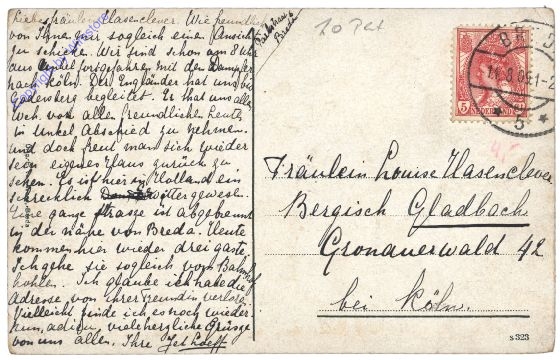 Liebes Fräulein Hasenclever. Wie freundlich
von Ihnen mir sogleich eine Ansicht
zu schicken. Wir sind schon um 8 Uhr
aus Unkel fortgefahren mit dem Dampfer
nach Köln. Der Engländer hat uns bis
Godesberg begleitet. Es that uns allen
Weh von allen freundlichen Leute
in Unkel Abschied zu nehmen.
und doch freut man sich wieder
sein eigenes Haus zurück zu
sehen. Es ist hier in Holland ein
schrecklich Donderwitter gewesen.
Eine ganze Strasse ist abgebrannt
in der nähe von Breda. Heute
kommen hier wieder drei gäste.
Ich gehe sie sogleich vom Bahnhof
hohlen. Ich glaube ich habe die
adresse von Ihrer Freundin verloren
Vielleicht finde ich es noch wieder
nun, adieu, viele herzliche Grüsse
von uns allen. Ihre
Breda
10 Pat
5 NEDERLAND 5
BREDA
11.8.09 1-2
* 5 *
4,-
Fräulein Louise Hasenclever
Bergisch Gladbach
Gronauerwald 42
bei Köln.
s 323